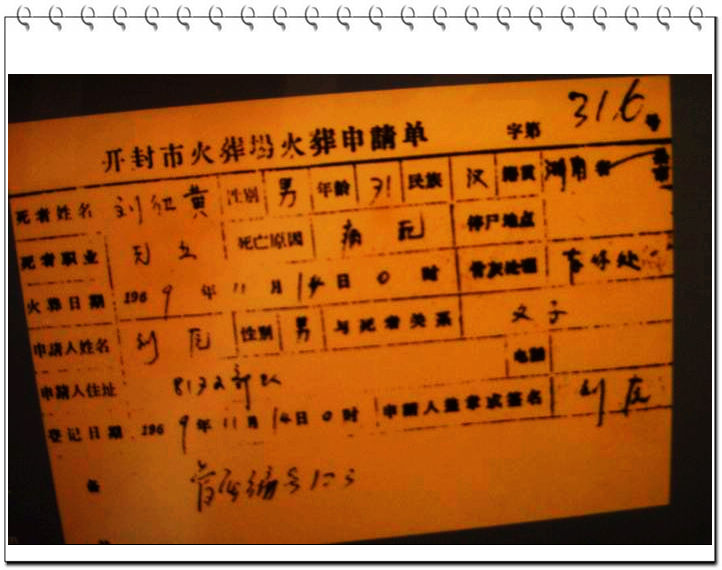 开封市火葬場火葬申請单 字第 316 号
死者姓名 刘卫黄 性别 男 年龄 71 民族 汉 籍贯 湖南省 县市
死者职业 无业 死亡原因 病死 停尸地点
火葬日期 1969年11月14日0时 骨灰处理 存
申請人姓名 刘 性别 男 与死者关系 父子 电話
申請人住址 8172部队
登记日期 1969年11月14日0时 申請人盖章或签名 刘
骨灰编号123